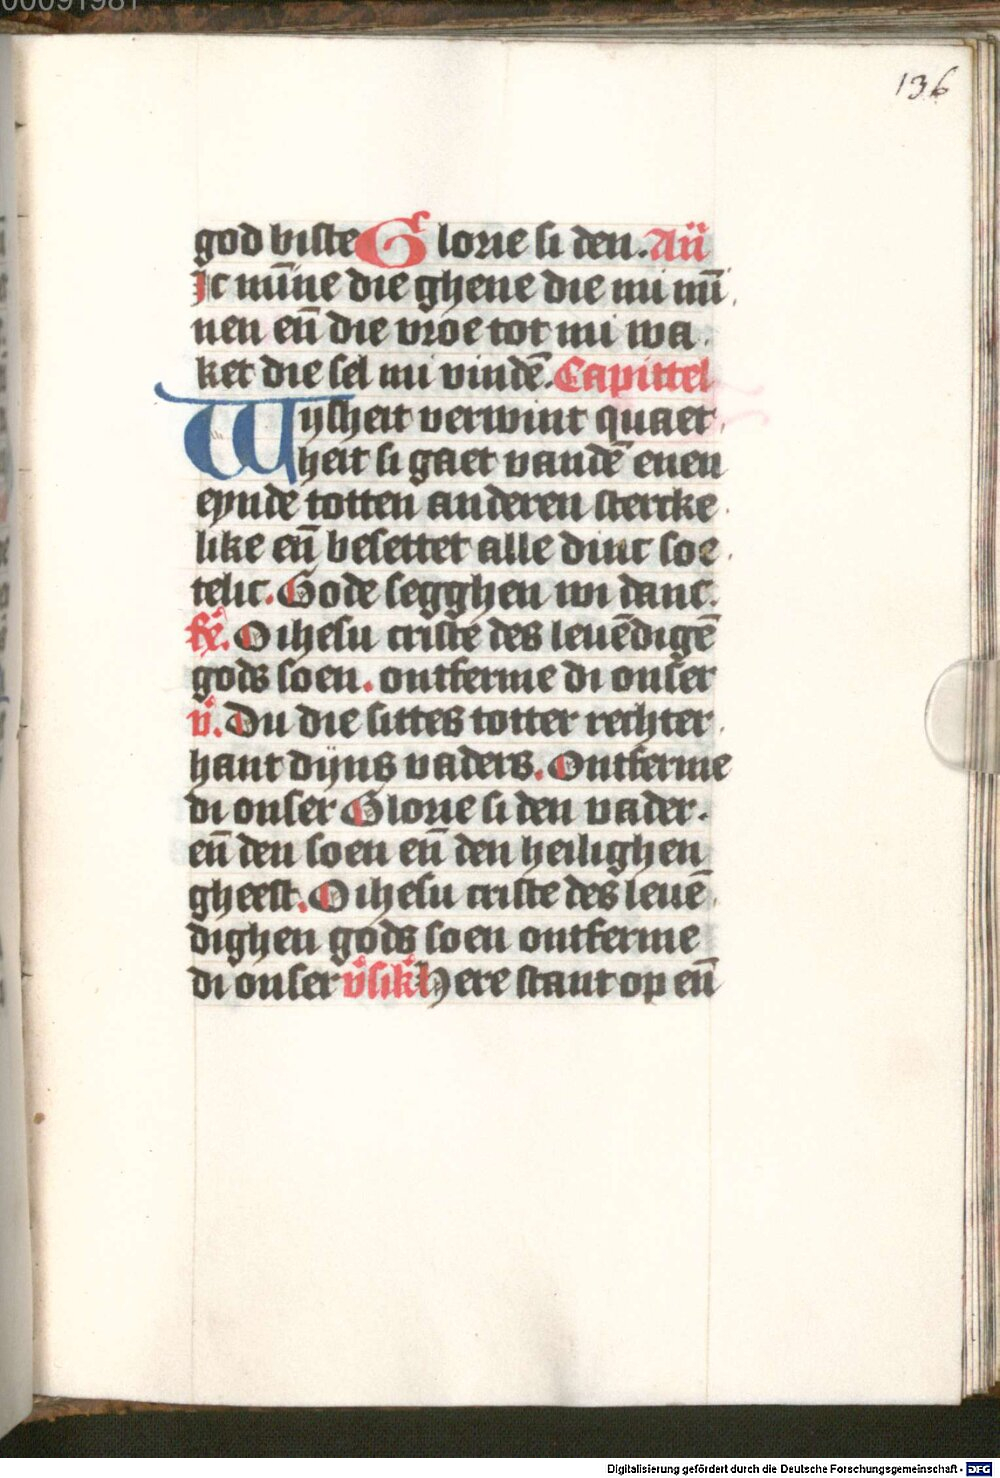 00091981
136
god biste Glorie si den. Añ
Ic mīne die ghene die mi mī
nen eñ die vroe tot mi wa
ket die sel mi vindē. Capittel
Wysheit verwint quaet
heit si gaet vandē enen
eynde totten anderen stercke
like eñ besettet alle dinc soe
telic. Gode segghen wi danc.
O ihesu criste des leuēdigē
gods soen. ontferme di onser
v̊. Du die sittes totter rechter
hant dijns vaders. Ontferme
di onser Glorie si den vader.
eñ den soen eñ den heilighen
gheest. O ihesu criste des leuē
dighen gods soen ontferme
di onser v̊sik̊l Here stant op eñ
Digitalisierung gefördert durch die Deutsche Forschungsgemeinschaft - DFG